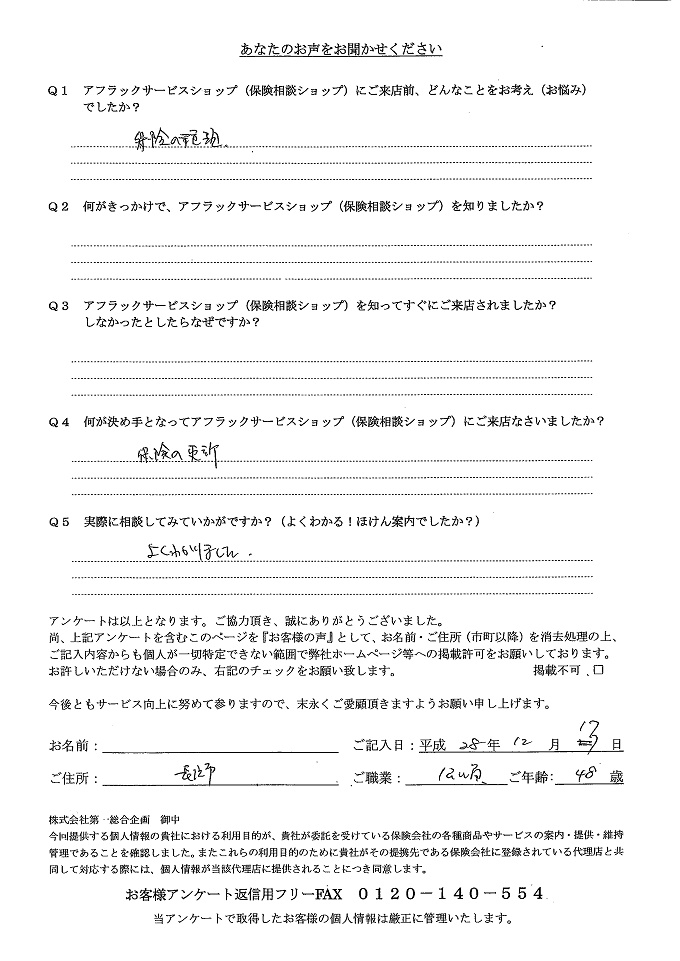 あなたのお声をお聞かせください
Q1 アフラックサービスショップ（保険相談ショップ）にご来店前、どんなことをお考え（お悩み）
でしたか？
保険の
Q2 何がきっかけで、アフラックサービスショップ（保険相談ショップ）を知りましたか？
Q3 アフラックサービスショップ（保険相談ショップ）を知ってすぐにご来店されましたか？
しなかったとしたらなぜですか？
Q4 何が決め手となってアフラックサービスショップ（保険相談ショップ）にご来店なさいましたか？
保険の更新
Q5 実際に相談してみていかがですか？（よくわかる！ほけん案内でしたか？）
よくわかりました.
アンケートは以上となります。ご協力頂き、誠にありがとうございました。
尚、上記アンケートを含むこのページを『お客様の声』として、お名前・ご住所（市町以降）を消去処理の上、
ご記入内容からも個人が一切特定できない範囲で弊社ホームページ等への掲載許可をお願いしております。
お許しいただけない場合のみ、右記のチェックをお願い致します。 掲載不可 □
今後ともサービス向上に努めて参りますので、末永くご愛顧頂きますようお願い申し上げます。
お名前： ご記入日：平成 28年 12 月 17 日
ご住所： ご職業： ご年齢： 48 歳
株式会社第一総合企画 御中
今回提供する個人情報の貴社における利用目的が、貴社が委託を受けている保険会社の各種商品やサービスの案内・提供・維持
管理であることを確認しました。またこれらの利用目的のために貴社がその提携先である保険会社に登録されている代理店と共
同して対応する際には、個人情報が当該代理店に提供されることにつき同意します。
お客様アンケート返信用フリーFAX 0120－140－554
当アンケートで取得したお客様の個人情報は厳正に管理いたします。